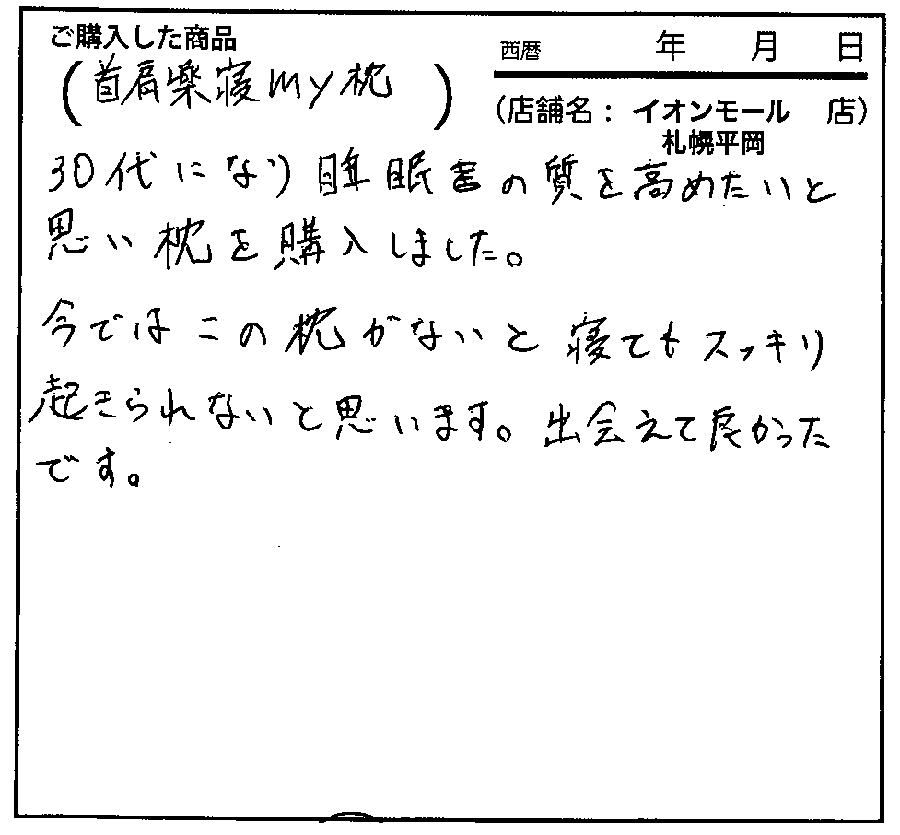 ご購入した商品
(首肩楽寝my枕)
西暦 年 月 日
(店舗名: イオンモール 店)
札幌平岡
30代になり睡眠の質を高めたいと
思い枕を購入しました。
今ではこの枕がないと寝てもスッキリ
起きられないと思います。出会えて良かった
です。